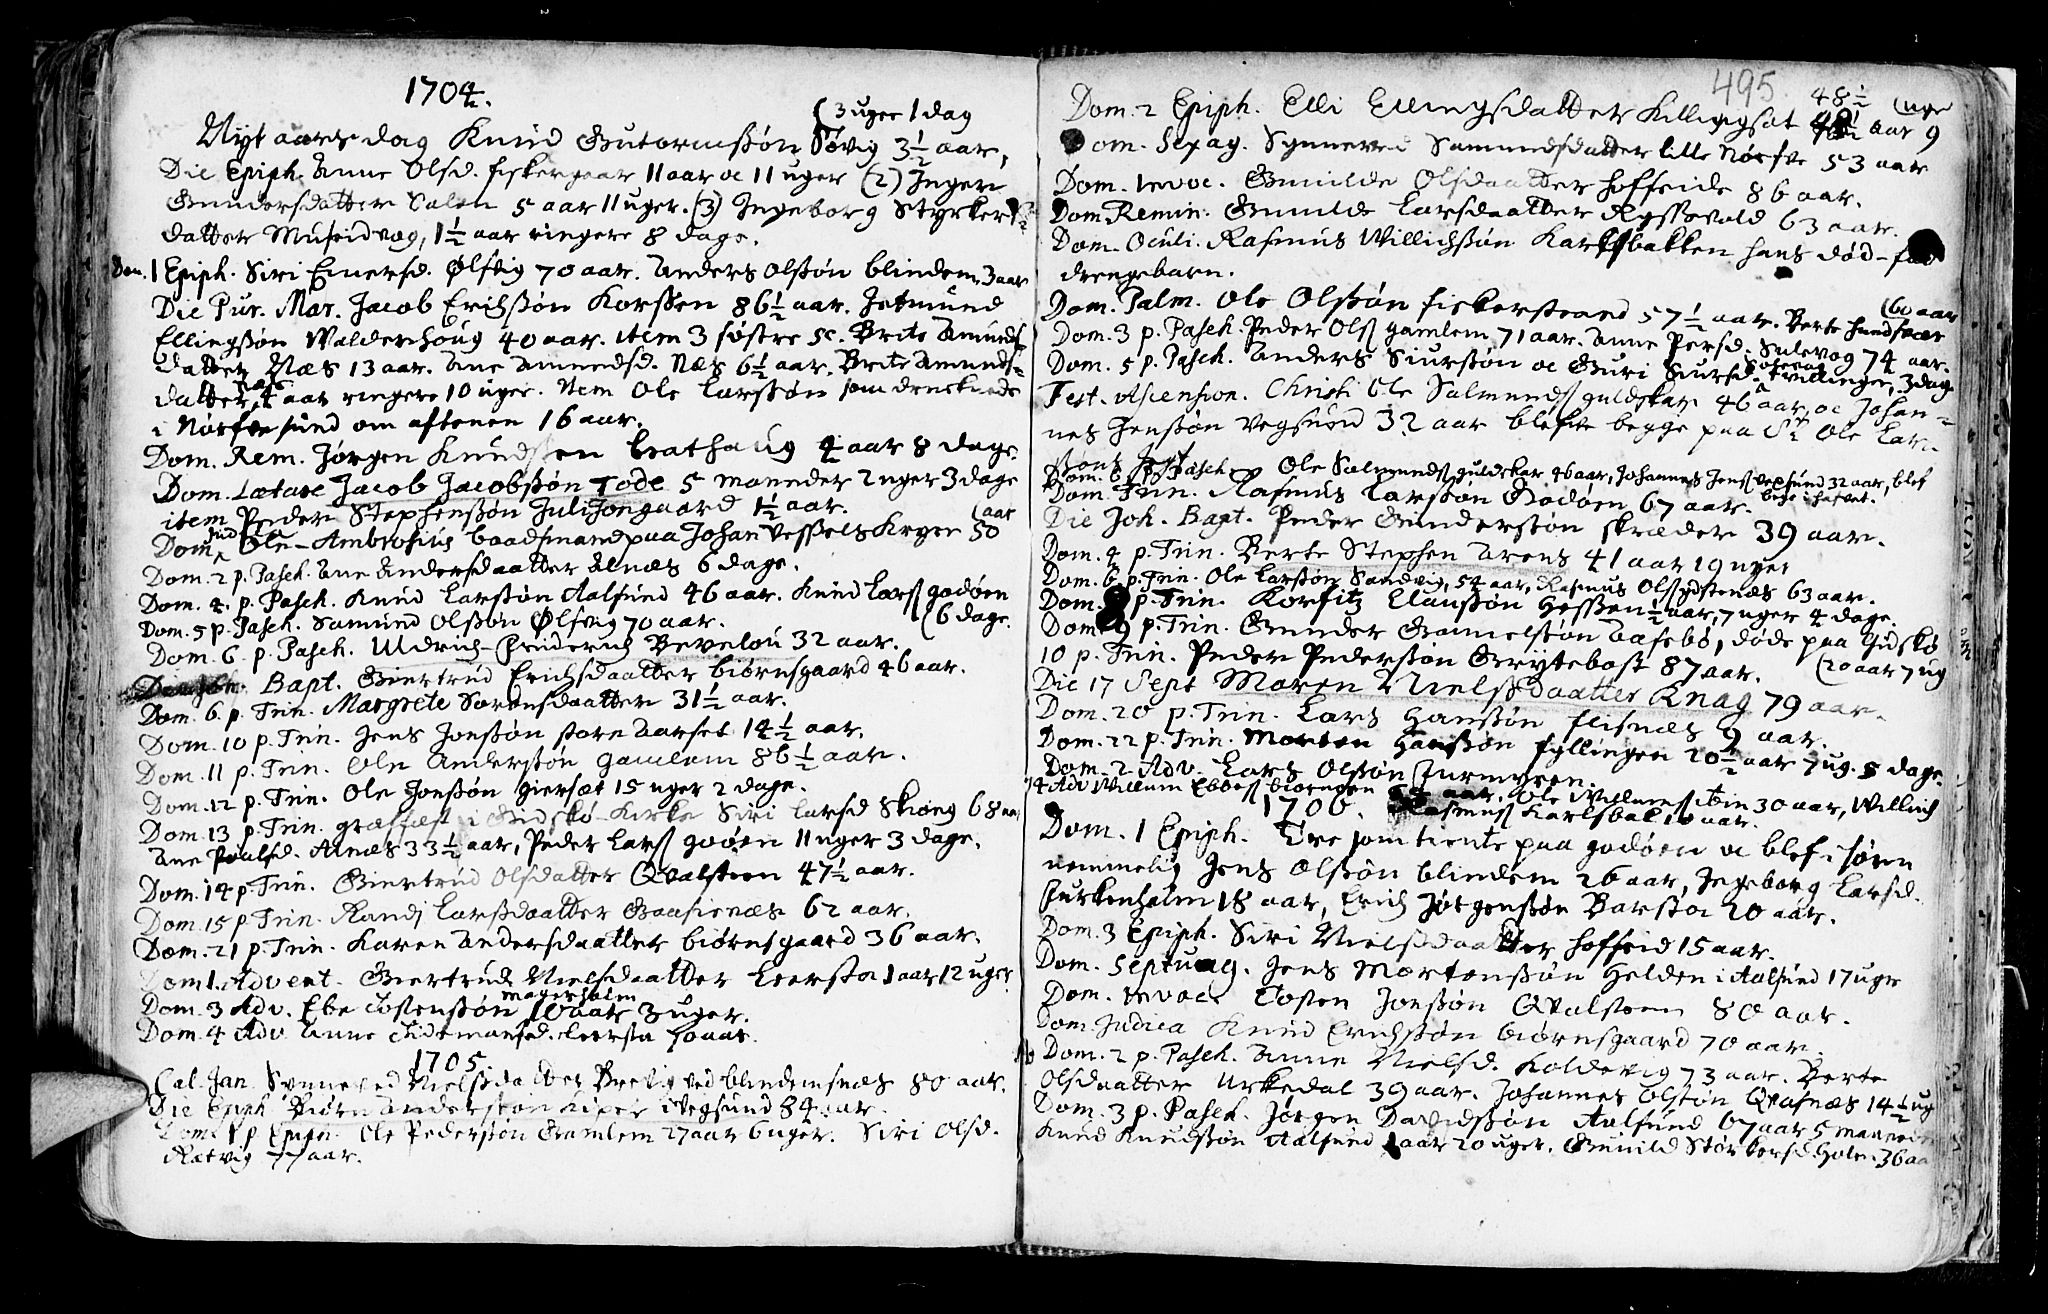 1704.
(3 uger 1 dag
Nyt aars dag Knud Gutormssøn Søvig 3½ aar,
Die Epiph. Anne Olsd. fiskergaar 11 aar oc 11 uger (2) Inger
Gundersdatter Salen 5 aar 11 uger. (3) Ingeborg Styrkers
datter Museidvog, 1½ aar ringere 8 dage.
Dom. 1 Epiph. Siri Emersd. Ølsvig 70 aar. Anders Olssøn blindem 3 aar
Die Pur. Mar. Jacob Erichssøn Korssen 86½ aar. Jetmund
Ellingssøn Walderhoug 40 aar. item 3 søstre sc. Brite Amunds-
datter Næs 13 aar. Ane Amundsd. Næs 6½ aar. Brite Amunds-
datter Næs 4 aar ringere 10 uger. Item Ole Larssøn som drucknede
i Nørfvesund om aftenen 16 aar.
Dom. Rem. Jørgen Knudssen Brathaug 4 aar 8 dage.
Dom. Lætare Jacob Jacobssøn Tode 5 maaneder 2 uger 3 dage
item Peder Stephenssøn Juli Jongaard 1½ aar. (aar
Dom. Jud. Ole Ambrosius baadsmand paa Johan Vessels Kryer 50
Dom. 2 p. Pasch. Ane Andersdaatter Alnæs 6 dage.
Dom. 4. p. Pasch. Knud Larssøn Aalsund 46 aar. Knud Larss godøen
Dom. 5 p. Pasch. Samund Olssøn Ølsvig 70 aar. (6 dage.
Dom. 6 p. Pasch. Uldrich Friderich Beveloū 32 aar.
Bapt. Giertrud Erichsdaatter biørnsgaard 46 aar.
Dom. 6. p. Trin. Margrete Sørensdaatter 31½ aar.
Dom. 10 p. Trin. Jens Jonssøn store Aarset 14½ aar.
Dom. 11 p. Trin. Ole Anderssøn Gamlem 86½ aar.
Dom. 12 p. Trin. Ole Jonssøn giersæt 15 uger 2 dage.
Dom. 13 p. Trin. græsfæst i Gidskø Kirke Siri Larsd Skiong 68 aar
Ane Poulsd. Alnæs 33½ aar, Peder Larss goøen 11 uger 3 dage.
Dom. 14 p. Trin. Giertrud Olsdatter Qvalsteen 47½ aar.
Dom. 15 p Trin. Randj Larssdaatter Gaasenæs 62 aar.
Dom. 21 p. Trin. Karen Andersdaatter biørnsgaard 36 aar.
Dom 1. Advent. Giertrud Nielsdaatter Leersta 1 aar 12 uger
Dom. 3 Adv. Ebe Tostenssøn magerholm 10 aar 3 uger.
Dom. 4 Adv Anne Tidemansd. Leersta 50 aar.
1705
Cal. Jan. Synneved Nielssdaatter Brevig ved blindemsnæs 80 aar.
Die Epiph Biørn Anderssøn Kiper i Vegsund 84 aar.
Dom. 1 p Epiph. Ole Pederssøn Gamlem 27 aar 6 uger. Siri Olsd.
Rætvig 77 aar.
495
48½ (uge
Dom. 2 Epiph. Elli Ellingsdatter Killingsøt 48½ aar 9
Dom. Sexag. Synneved Samundsdatter lille Nørfve 53 aar
Dom. Invoc. Gunilde Olsdaatter hoffseide 86 aar.
Dom. Remin. Gunilde Larsdaatter Ryssevold 63 aar.
Dom. Oculi. Rasmus Willichssøn Karlsbakken hans død-fød
drengebarn.
Dom. Palm. Ole Olssøn fiskerstrand 57½ aar. Berte hundsvær (60 aar
Dom. 3 p. Pasch. Peder Olss gamlem 71 aar. Anne Persd. Sulevog 74 aar.
Dom. 5 p. Pasch. Anders Siurssøn oc Guri Siursd. tvillinger, 3 dage
Fest. Ascension. Christi Ole Salmundss guldskar 46 aar, oc Johan-
nes Jenssøn Vegsund 32 aar blefve begge paa Sr. Ole Lar-
Dom. 6 p. Pasch. Ole Salmundss guldskar 46 aar, Johannes Jenss vegsund 32 aar, blef
Dom. Trin. Rasmus Larssøn Godøen 67 aar. bege i hafvet.
Die Joh. Bapt. Peder Gunderssøn skræder 39 aar.
Dom. 4 p. Trin. Berte Stephen Arens 41 aar 19 uger
Dom. 6 p. Trin. Ole Larssøn Sandvig, 54 aar, Rasmus Olss ystenæs 63 aar.
Dom. 8 p. Trin. Korfitz Claussøn Hessen ½ aar, 7 uger 4 dage.
Dom. 9 p. Trin. Gunder Gamelssøn Aasebø, døde paa Gidskø
10 p. Trin. Peder Pederssøn Grytebost 87 aar. (20 aar 7 ug
Die 17 Sept Maren Nielssdaatter Knag 79 aar.
Dom. 20 p. Trin. Lars Hanssøn flisnæs 9 aar.
Dom. 22 p. Trin. Morten Hanssøn fyllingen 20½ aar 7 ug. 5 dage.
Dom. 2 Adv. Lars Olssøn Furmyren.
4 Adv Willum Ebbess biørnøen aar. Ole Willumss ibin 30 aar, Willich
1706. Rasmuss Karlsbak 10 aar.
Dom. 1 Epiph. Tre som tiente paa godøen oc blef i søen
nemmelig Jens Olssøn blindem 26 aar, Ingeborg Larsd.
Purkenholm 18 aar, Erich Jørgenssøn Barsta 20 aar.
Dom. 3 Epiph. Siri Nielssdaatter hoffseid 15 aar.
Dom. Septuag. Jens Mortenssøn Helden i Aalsund 17 uge
Dom. Invoc. Tosten Jonssøn Qvalsteen 80 aar.
Dom. Judica Knud Erichssøn biørnsgaard 70 aar
Dom. 2 p. Pasch. Anne Nielsd. Koldevig 73 aar. Berte
Olsdaatter Urkedal 39 aar. Johannes Olssøn Qvasnæs 14½ ug
Dom. 3 p. Pasch. Jørgen Davidssøn Aalsund 67 aar 5 maaneder
Knud Knudssøn Aalsund 1 aar 20 uger. Gunild Størkersd. Holen 36 aa